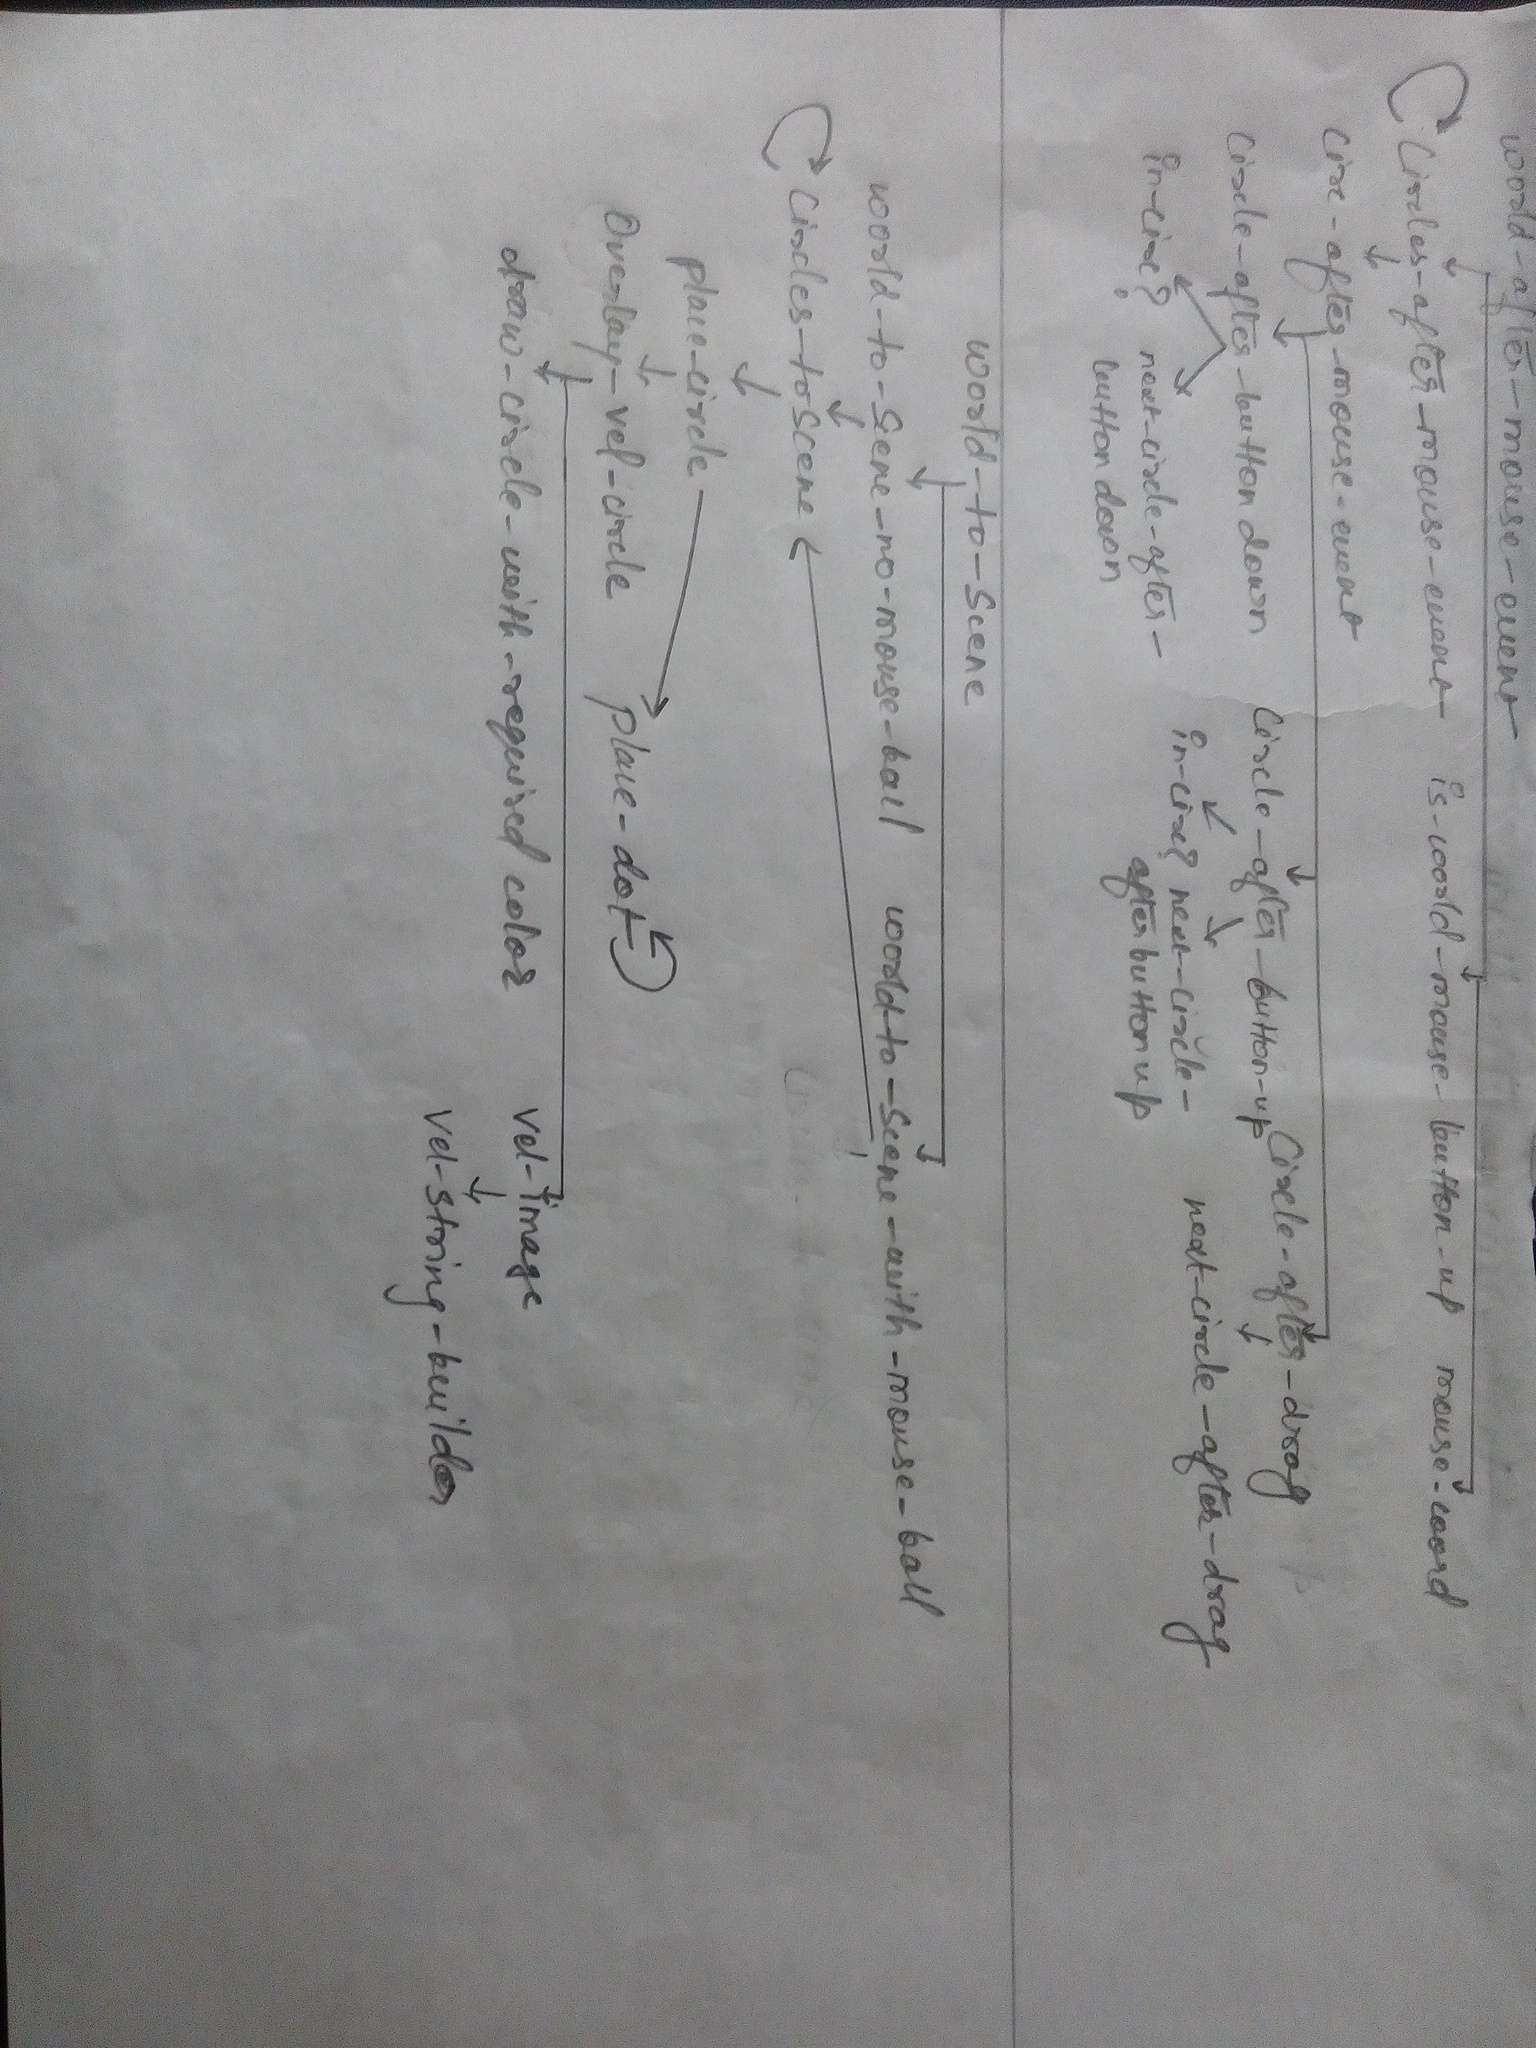 world-after-mouse-event
Circles-after-mouse-event is-world-mouse-button-up mouse-coord
circ-after-mouse-event
Circle-after-button down Circle-after-button-up Circle-after-drag
in-circ? next-circle-after- in-circ? next-circle- next-circle-after-drag
button down after button up
world-to-scene
world-to-scene-no-mouse-ball world-to-scene-with-mouse-ball
Circles-to scene
place-circle
Overlay-vel-circle place-dot
draw-circle-with-required color vel-image
vel-string-builder